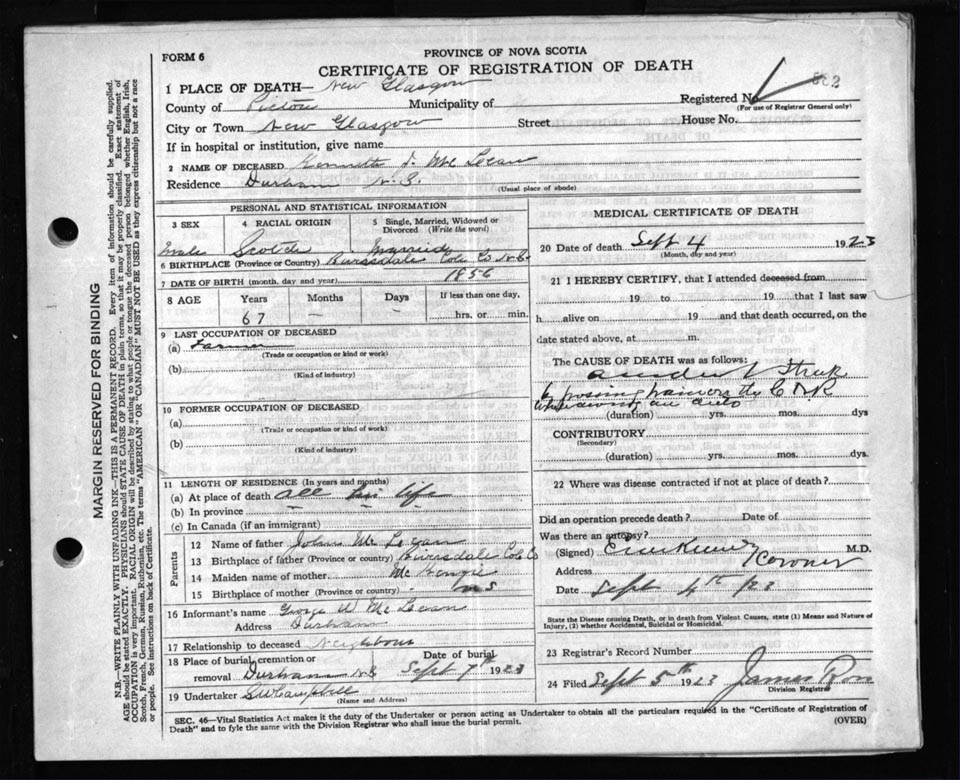 FORM 6
PROVINCE OF NOVA SCOTIA
CERTIFICATE OF REGISTRATION OF DEATH
1 PLACE OF DEATH— New Glasgow
County of Pictou Municipality of
Registered No.
(For use of Registrar General only)
City or Town New Glasgow Street House No.
If in hospital or institution, give name
2 NAME OF DECEASED Kenneth J. McLean
Residence Durham N.S.
(Usual place of abode)
PERSONAL AND STATISTICAL INFORMATION
3 SEX 4 RACIAL ORIGIN 5 Single, Married, Widowed or Divorced (Write the word)
Male Scotch Married
6 BIRTHPLACE (Province or Country) Col. Co N.S.
7 DATE OF BIRTH (month, day and year) 1856
8 AGE Years Months Days If less than one day,
67 — — hrs. or min.
9 LAST OCCUPATION OF DECEASED
(a) Farmer
(Trade or occupation or kind or work)
(b)
(Kind of industry)
10 FORMER OCCUPATION OF DECEASED
(a)
(Trade or occupation or kind or work)
(b)
(Kind of industry)
11 LENGTH OF RESIDENCE (In years and months)
(a) At place of death all his life
(b) In province
(c) In Canada (if an immigrant)
Parents
12 Name of father John
13 Birthplace of father (Province or country) Col Co
14 Maiden name of mother McKenzie
15 Birthplace of mother (Province or country) N S
16 Informant's name George W McLean
Address Durham
17 Relationship to deceased Neighbour
18 Place of burial, cremation or removal Durham N.S. Date of burial Sept 7th 1923
19 Undertaker Campbell
(Name and Address)
MEDICAL CERTIFICATE OF DEATH
20 Date of death Sept 4 1923
(Month, day and year)
21 I HEREBY CERTIFY, that I attended deceased from
19 to 19 that I last saw
h alive on 19 and that death occurred, on the
date stated above, at m.
The CAUSE OF DEATH was as follows:
accident Struck
by passing train on the C N R
auto
(duration) yrs. mos. dys
CONTRIBUTORY
(Secondary)
(duration) yrs. mos. dys.
22 Where was disease contracted if not at place of death?
Did an operation precede death? Date of
Was there an autopsy?
(Signed) M.D.
Coroner
Address
Date Sept 4th /23
State the Disease causing Death, or in death from Violent Causes, state (1) Means and Nature of
Injury, (2) whether Accidental, Suicidal or Homicidal.
23 Registrar's Record Number
24 Filed Sept 5th 1923 James
Division Registrar
SEC. 46—Vital Statistics Act makes it the duty of the Undertaker or person acting as Undertaker to obtain all the particulars required in the "Certificate of Registration of
Death" and to fyle the same with the Division Registrar who shall issue the burial permit.
(OVER)
MARGIN RESERVED FOR BINDING
N.B.—WRITE PLAINLY WITH UNFADING INK—THIS IS A PERMANENT RECORD. Every item of information should be carefully supplied.
AGE should be stated EXACTLY. PHYSICIANS should STATE CAUSE OF DEATH in plain terms, so that it may be properly classified. Exact statement of
OCCUPATION is very important. RACIAL ORIGIN will be described by stating to what people or tongue the deceased person belonged whether English, Irish,
Scotch, French, German, Russian, Ruthenian, etc. The terms "AMERICAN" or "CANADIAN" MUST NOT BE USED as they express citizenship but not a race
or people. See instructions on back of Certificate.